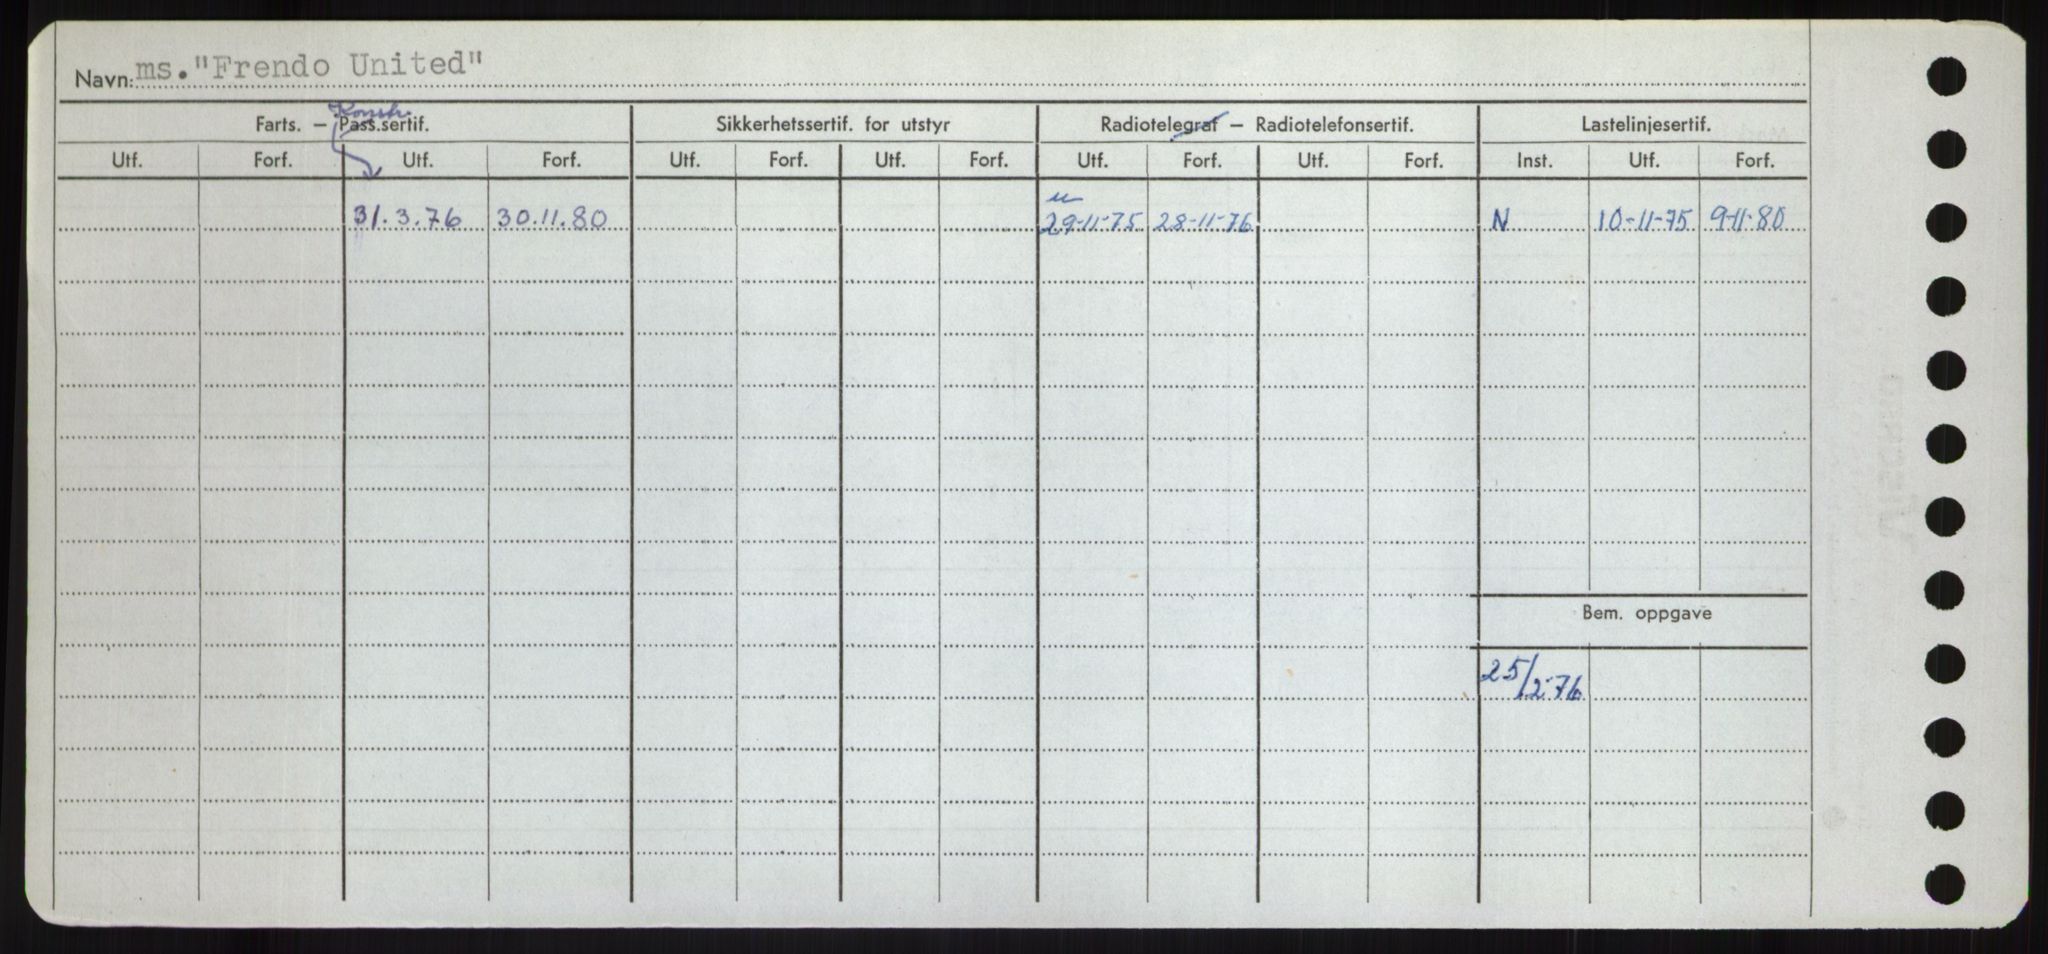 Navn: ms. "Frendo United"
Konstr.
Farts. — Pass.sertif. Sikkerhetssertif. for utstyr Radiotelegraf — Radiotelefonsertif. Lastelinjesertif.
Utf. Forf. Utf. Forf. Utf. Forf. Utf. Forf. Utf. Forf. Utf. Forf. Inst. Utf. Forf.
31.3.76 30.11.80 29-11-75 28-11-76 N 10-11-75 9-11-80
Bem. oppgave
25/2-76